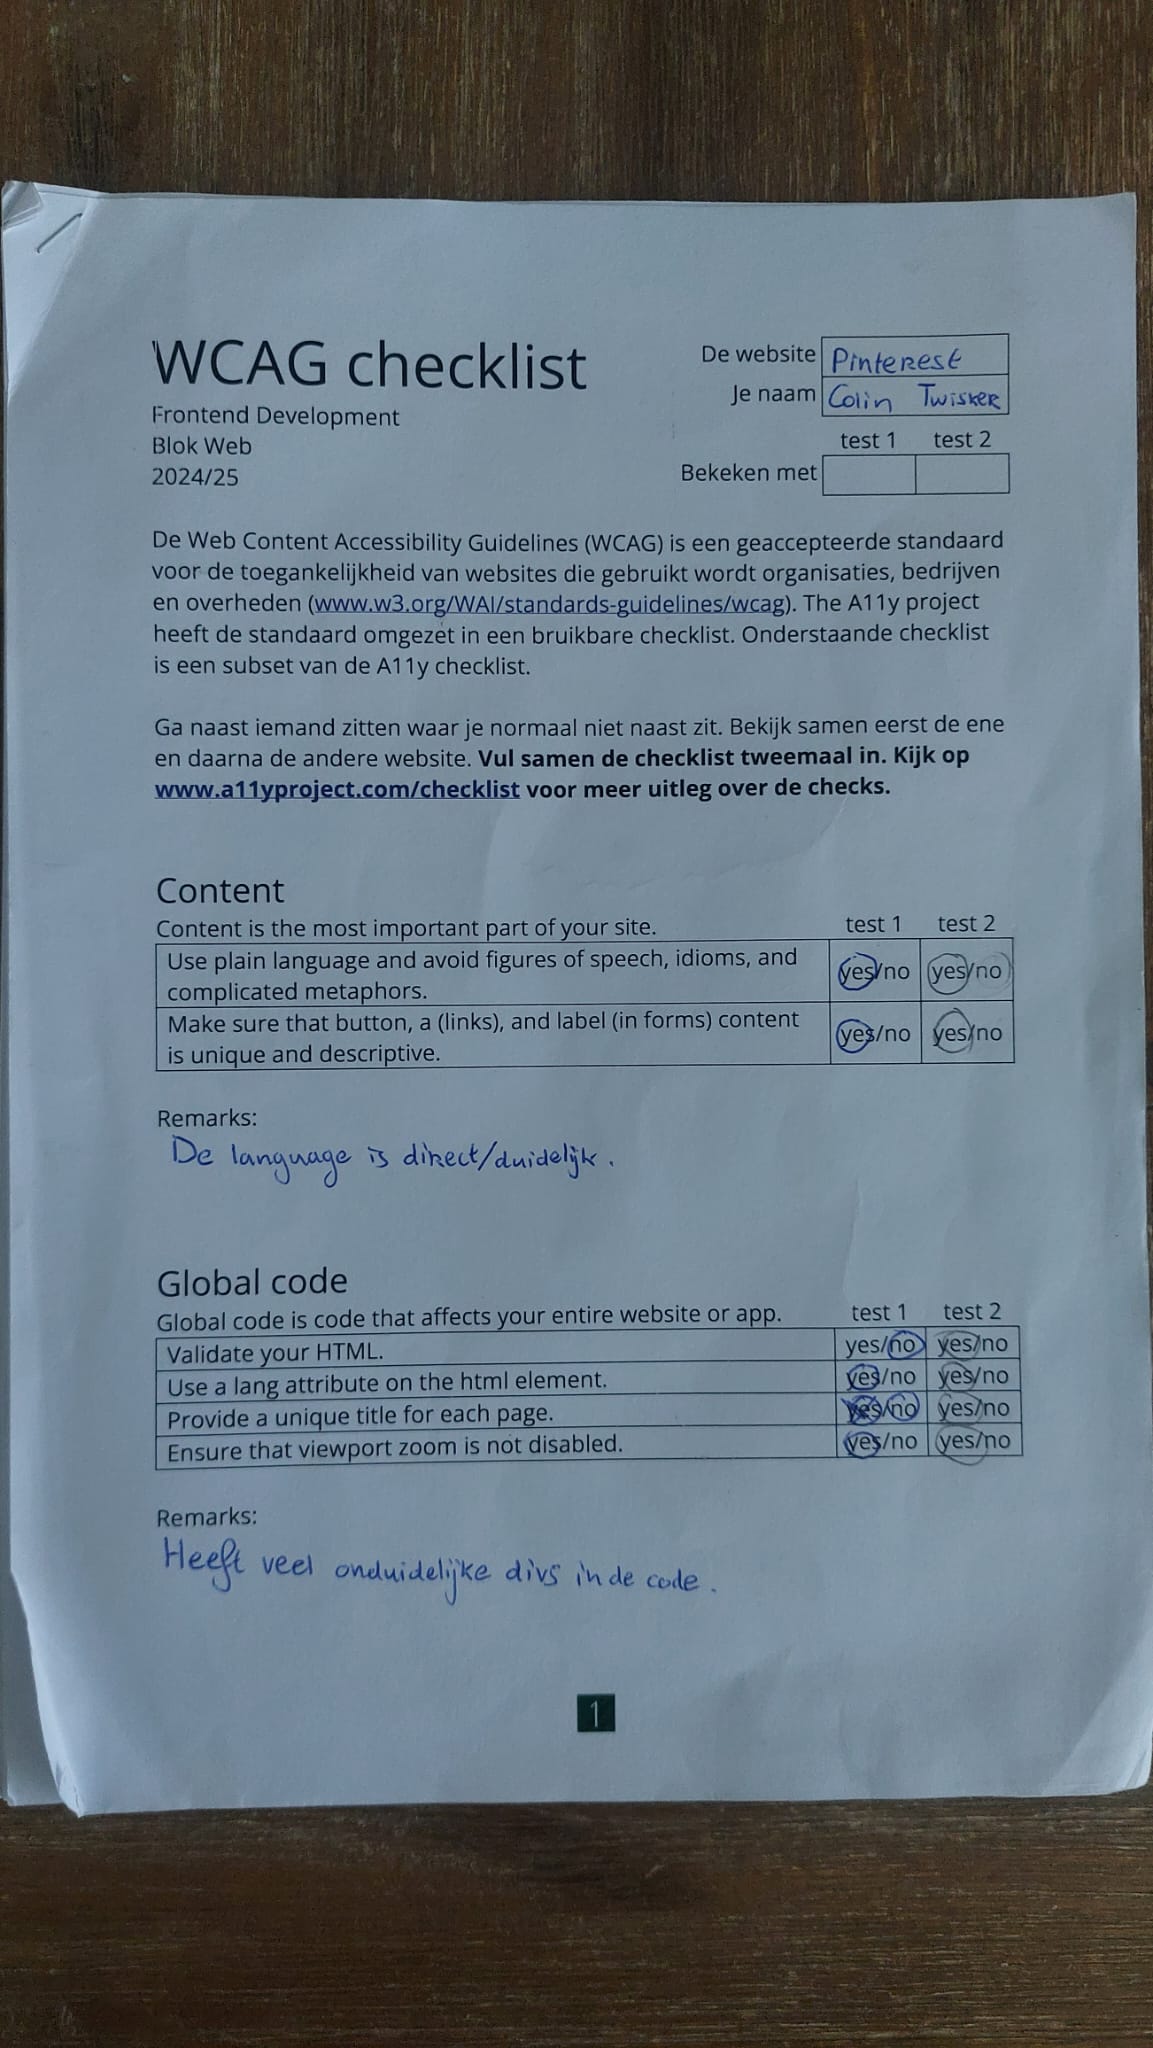 WCAG checklist
De website Pinterest
Je naam Colin Twisker
Frontend Development
Blok Web
2024/25
test 1 test 2
Bekeken met
De Web Content Accessibility Guidelines (WCAG) is een geaccepteerde standaard
voor de toegankelijkheid van websites die gebruikt wordt organisaties, bedrijven
en overheden (www.w3.org/WAI/standards-guidelines/wcag). The A11y project
heeft de standaard omgezet in een bruikbare checklist. Onderstaande checklist
is een subset van de A11y checklist.
Ga naast iemand zitten waar je normaal niet naast zit. Bekijk samen eerst de ene
en daarna de andere website. Vul samen de checklist tweemaal in. Kijk op
www.a11yproject.com/checklist voor meer uitleg over de checks.
Content
Content is the most important part of your site. test 1 test 2
Use plain language and avoid figures of speech, idioms, and
complicated metaphors. yes/no yes/no
Make sure that button, a (links), and label (in forms) content
is unique and descriptive. yes/no yes/no
Remarks:
De language is direct/duidelijk.
Global code
Global code is code that affects your entire website or app. test 1 test 2
Validate your HTML. yes/no yes/no
Use a lang attribute on the html element. yes/no yes/no
Provide a unique title for each page. yes/no yes/no
Ensure that viewport zoom is not disabled. yes/no yes/no
Remarks:
Heeft veel onduidelijke divs in de code.
1